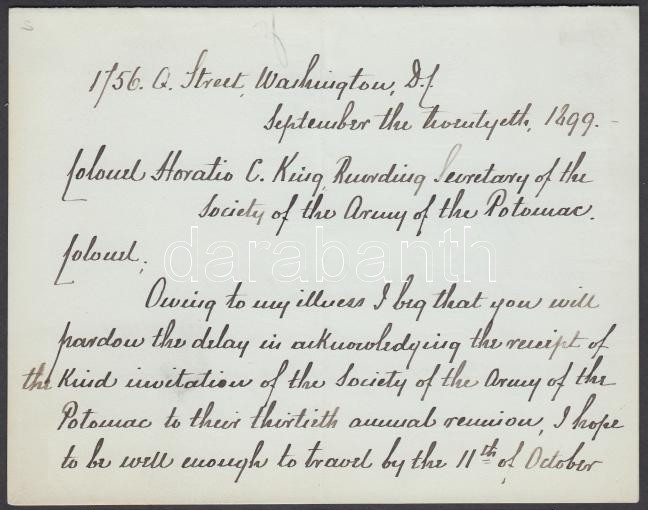 1756. Q. Street, Washington, D.C.
September the twentyeth, 1899.-
Colonel Horatio C. King, Recording Secretary of the
Society of the Army of the Potomac.
Colonel,
darabanth
Owing to my illness I beg that you will
pardon the delay in acknowledging the receipt of
the Kind invitation of the Society of the Army of the
Potomac to their thirtieth annual reunion, I hope
to be well enough to travel by the 11th of October